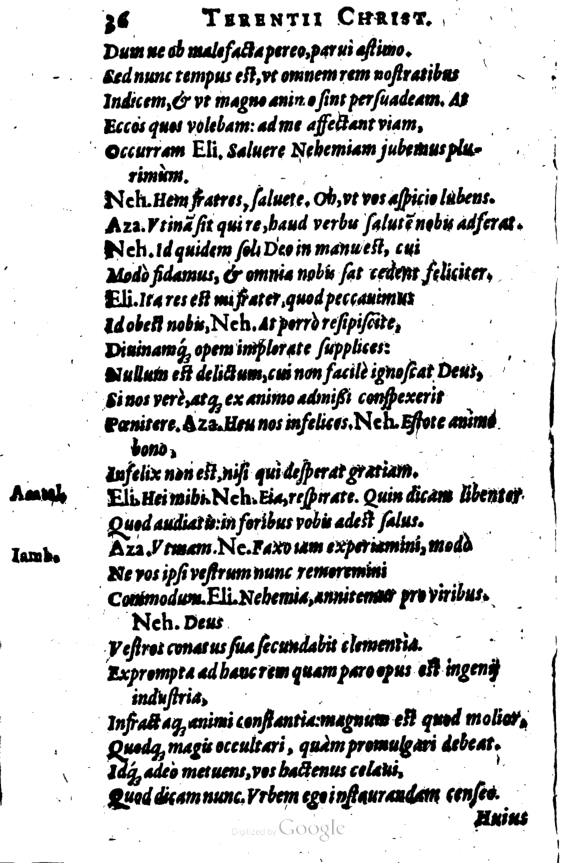 36 TERENTII CHRIST.
Dum ne ob malefacta pereo, parui æstimo.
Sed nunc tempus est, vt omnem rem nostratibus
Indicem, & vt magno animo sint persuadeam. At
Eccos quos volebam: ad me affectant viam,
Occurram Eli. Saluere Nehemiam jubemus plu-
rimùm.
Neh. Hem fratres, saluete. Oh, vt vos aspicio lubens.
Aza. Vtinã sit qui re, haud verbu salutẽ nobis adferat.
Neh. Id quidem soli Deo in manu est, cui
Modò fidamus, & omnia nobis sat cedent feliciter,
Eli. Ita res est mi frater, quod peccauimus
Id obest nobis, Neh. At porrò resipiscite,
Diuinamq́; opem implorate supplices:
Nullum est delictum, cui non facilè ignoscat Deus,
Si nos verè, atq; ex animo admißi conspexerit
Pœnitere. Aza. Heu nos infelices. Neh. Estote animo
bono,
Infelix non est, nisi qui desperat gratiam.
Eli. Hei mihi. Neh. Eia, respirate. Quin dicam libenter
Quod audiatis: in foribus vobis adest salus.
Iamb.
Aza. Vtinam. Ne. Faxo iam experiamini, modò
Ne vos ipsi vestrum nunc remoremini
Commodum. Eli. Nehemia, annitemur pro viribus.
Neh. Deus
Vestros conatus sua secundabit clementia.
Exprompta ad hanc rem quam paro opus est ingenij
industria,
Infractaq; animi constantia: magnum est quod molior,
Quodq; magis occultari, quàm promulgari debeat.
Idq́; adeò metuens, vos hactenus celaui,
Quod dicam nunc. Vrbem ego instaurandam censeo.
Huius
Digitized by Google